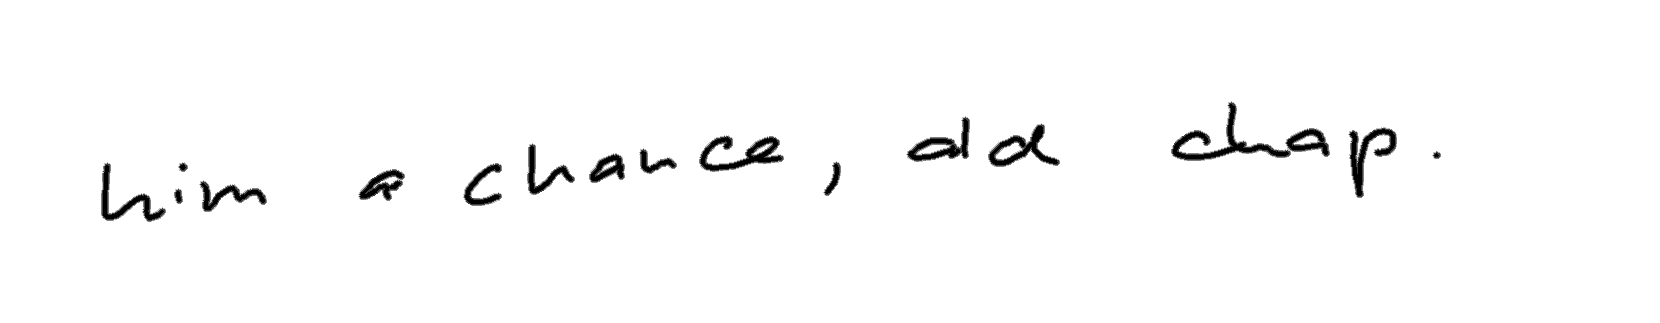 him a chance, old chap.